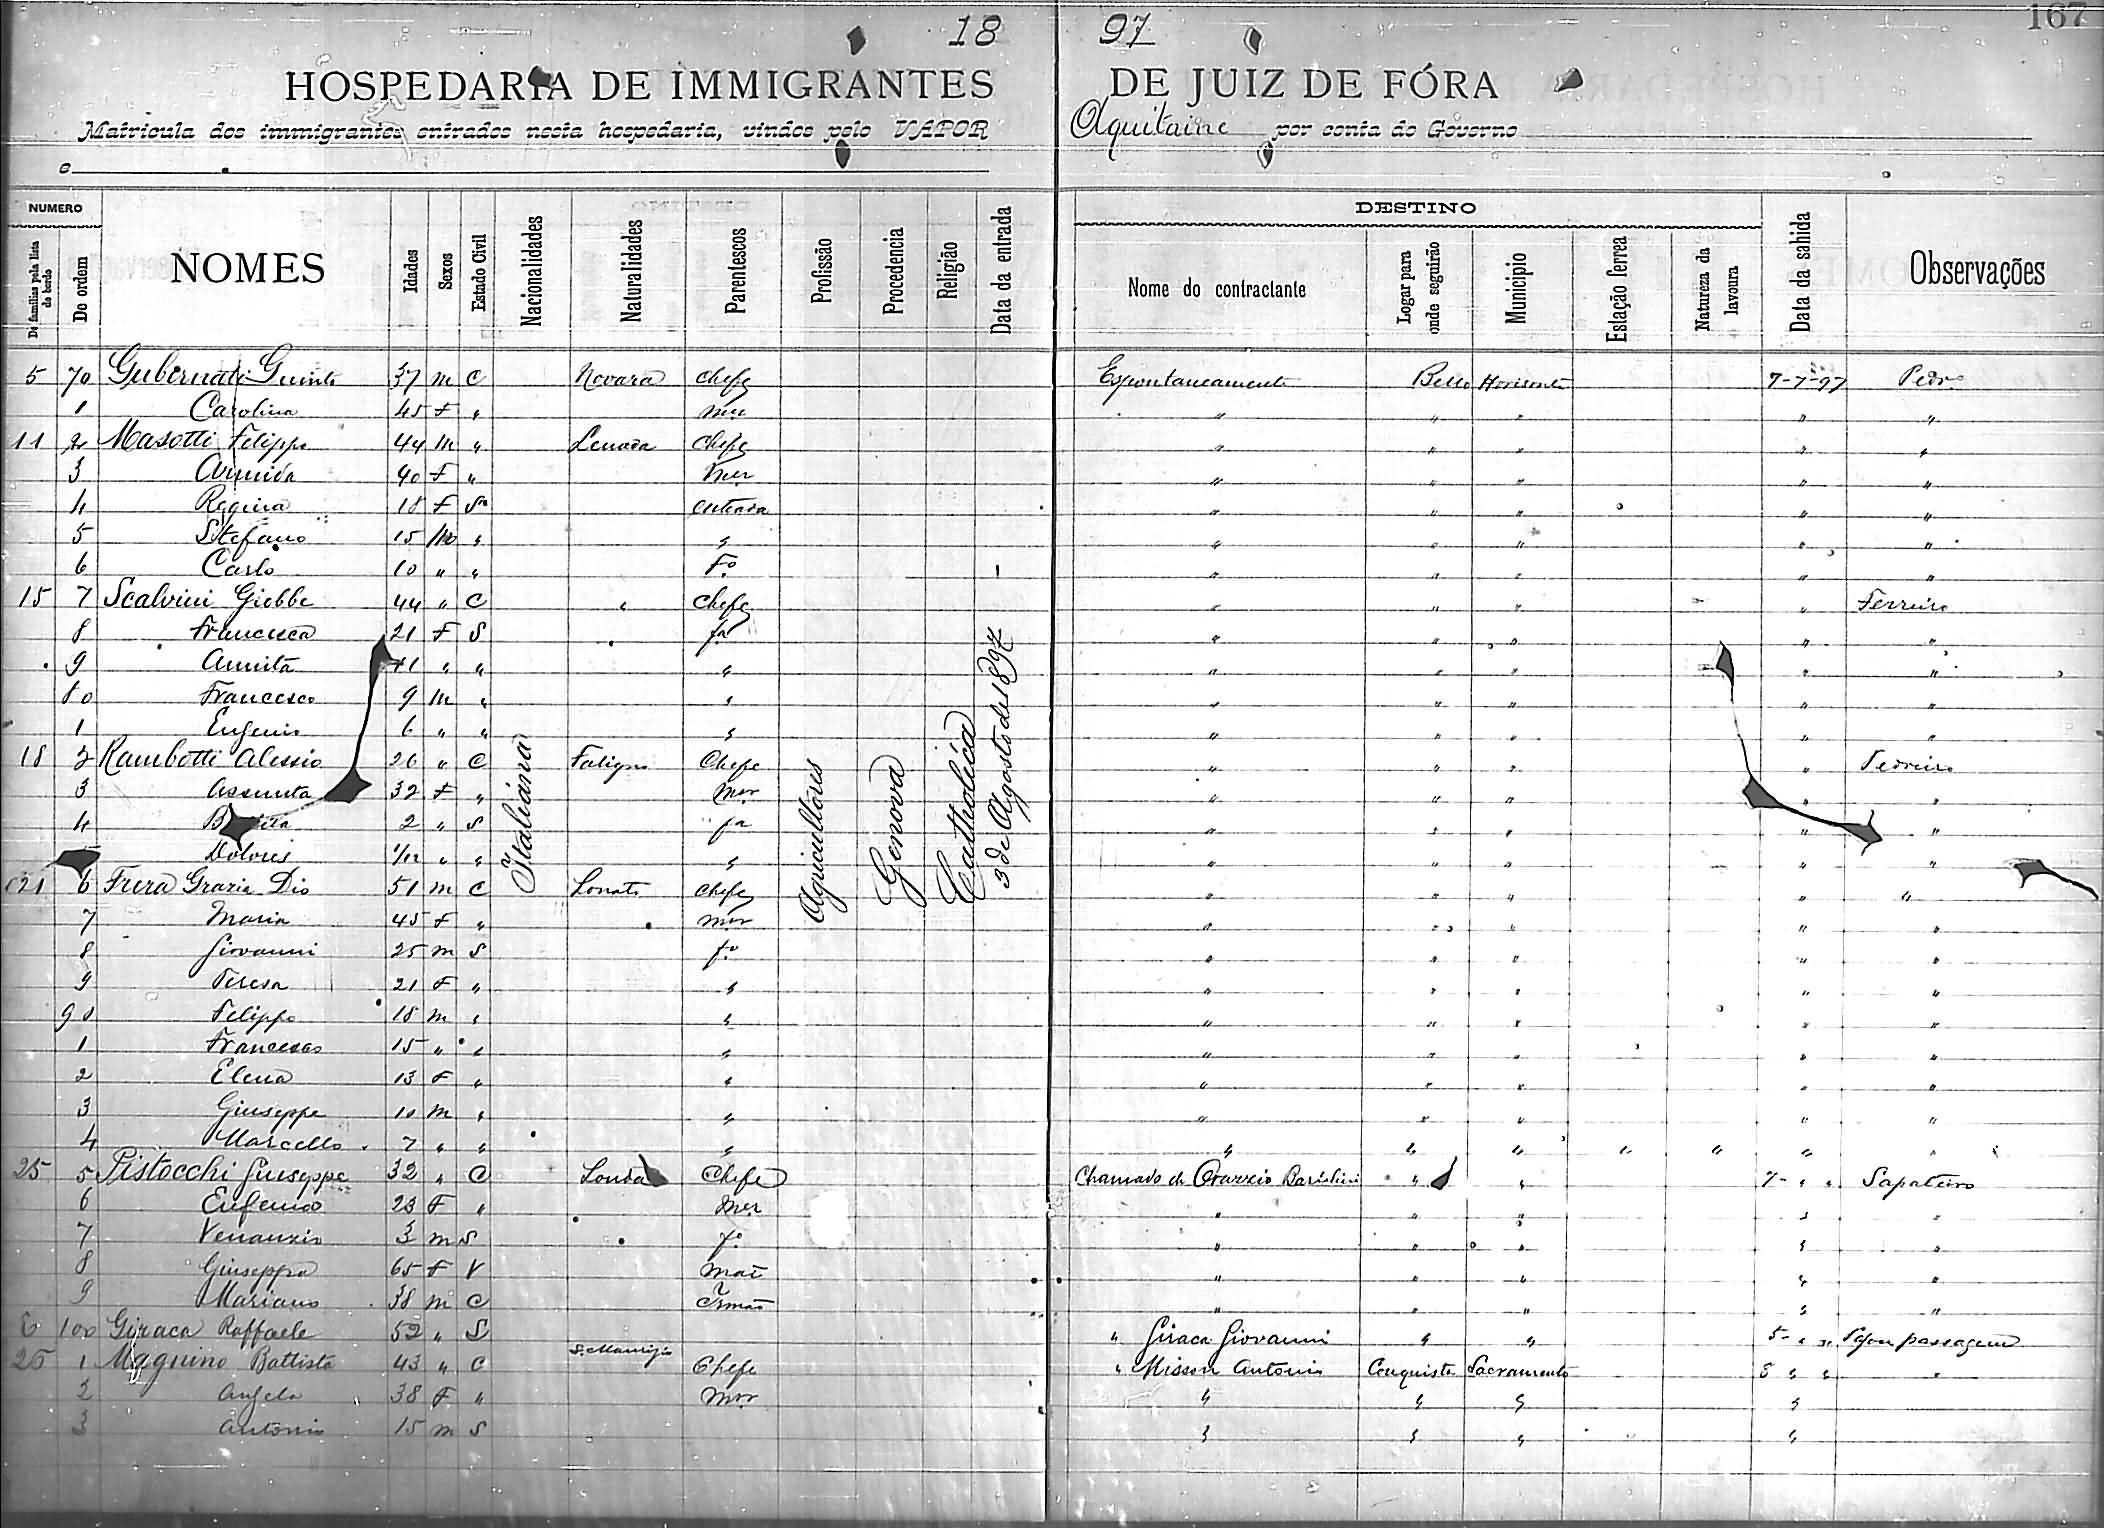 167
18 97
HOSPEDARIA DE IMMIGRANTES DE JUIZ DE FÓRA
Matricula dos immigrantes entrados nesta hospedaria, vindos pelo VAPOR Aquitaine por conta do Governo
e
NUMERO
De familias pela lista de bordo
De ordem
NOMES
Idades
Sexos
Estado Civil
Nacionalidades
Naturalidades
Parentescos
Profissão
Procedencia
Religião
Data da entrada
DESTINO
Nome do contractante
Logar para onde seguirão
Municipio
Estação ferrea
Natureza da lavoura
Data da sahida
Observações
5 70 Gubernati 37 m C Novara Chefe Espontaneamente Bello Horisonte 7-7-97 Pedro
1 Carolina 45 F " mer " " " " "
11 2 Masotti Filippo 44 m " Chefe " " " " "
3 40 F " mer " " " " "
4 Regina 18 F S enteada " " " " "
5 Stefano 15 m " " " " " " "
6 Carlo 10 " " Fo " " " " "
15 7 Scalvini Giobbe 44 " C " Chefe " " " " Ferreiro
8 Francesca 21 F S " fa " " " " "
9 Annita 11 " " " " " " " "
80 Francesco 9 m " " " " " " "
1 Eugenio 6 " " " " " " " "
18 2 Rambotti Alessio 26 " C Foligno Chefe " " " " Pedreiro
3 Assunta 32 F " mer " " " " "
4 2 " S fa " " " " "
Dolores 1/12 " " " " " " " "
21 6 Frera Grazia Dio 51 m C Lonato Chefe " " " " "
7 Maria 45 F " mer " " " " "
8 Giovanni 25 m S fo " " " " "
9 Teresa 21 F " " " " " " "
90 Filippo 18 m " " " " " " "
1 Francesco 15 " " " " " " " "
2 Elena 13 F " " " " " " "
3 Giuseppe 10 m " " " " " " "
4 Marcello 7 " " " " " " " " " "
25 5 Pistocchi Giuseppe 32 " C Chefe Chamado de " " 7- " " Sapateiro
6 Eugenia 23 F " mer " " " " "
7 Venanzio 3 m S fo " " " " "
8 Giuseppa 65 F V mai " " " " "
9 Mariano 38 m C Irmão " " " " "
6 100 Giraca Raffaele 52 " S " Giraca Giovanni " " 5- " " Pagou passagem
25 1 Magnino Battista 43 " C Chefe " Misson Antonio Conquista Sacramento 8 " " "
2 Angela 38 F " mer " " " "
3 Antonio 15 m S " " " "
Italiána
Agricultores
Genova
Catholica
3 de Agosto de 1897